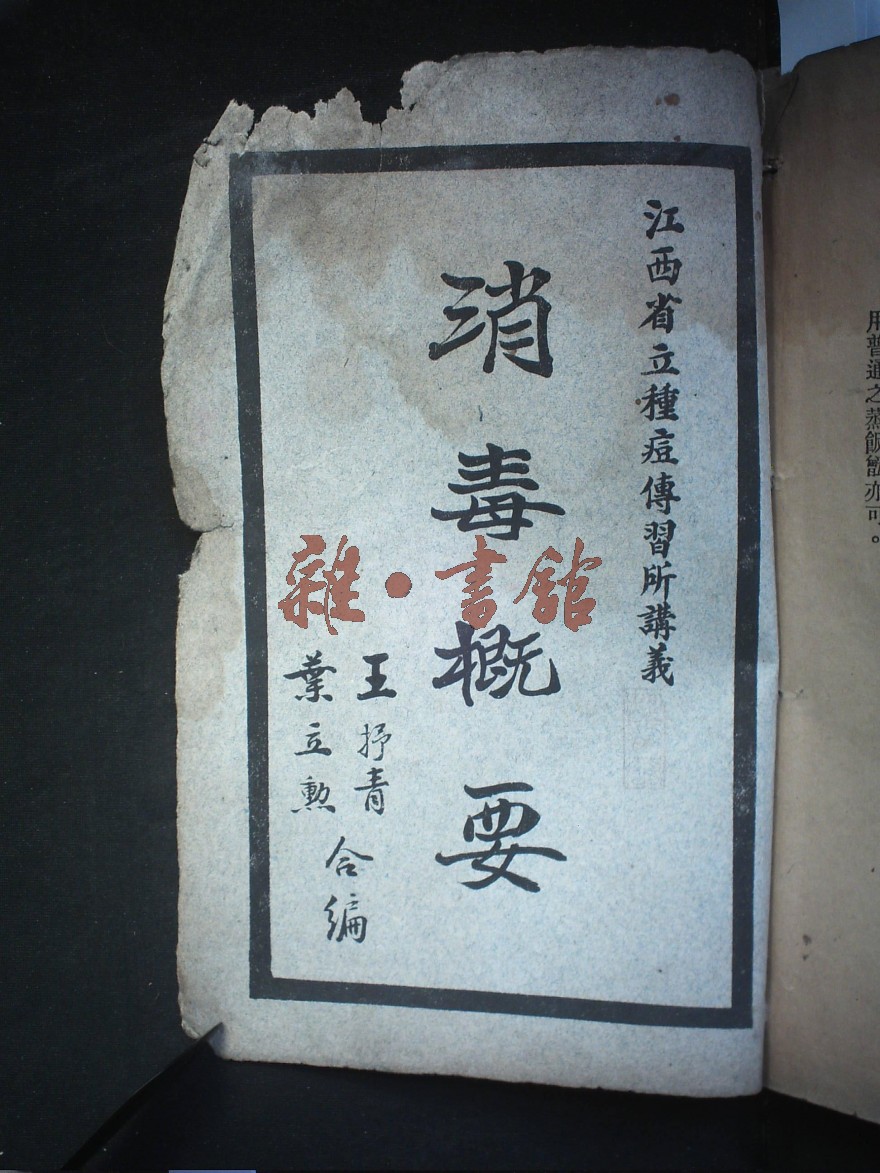 江西省立種痘傳習所講義
消毒概要
王抒青
葉立勲
合編
雜•書舘
用普通之蒸飯甑亦可。